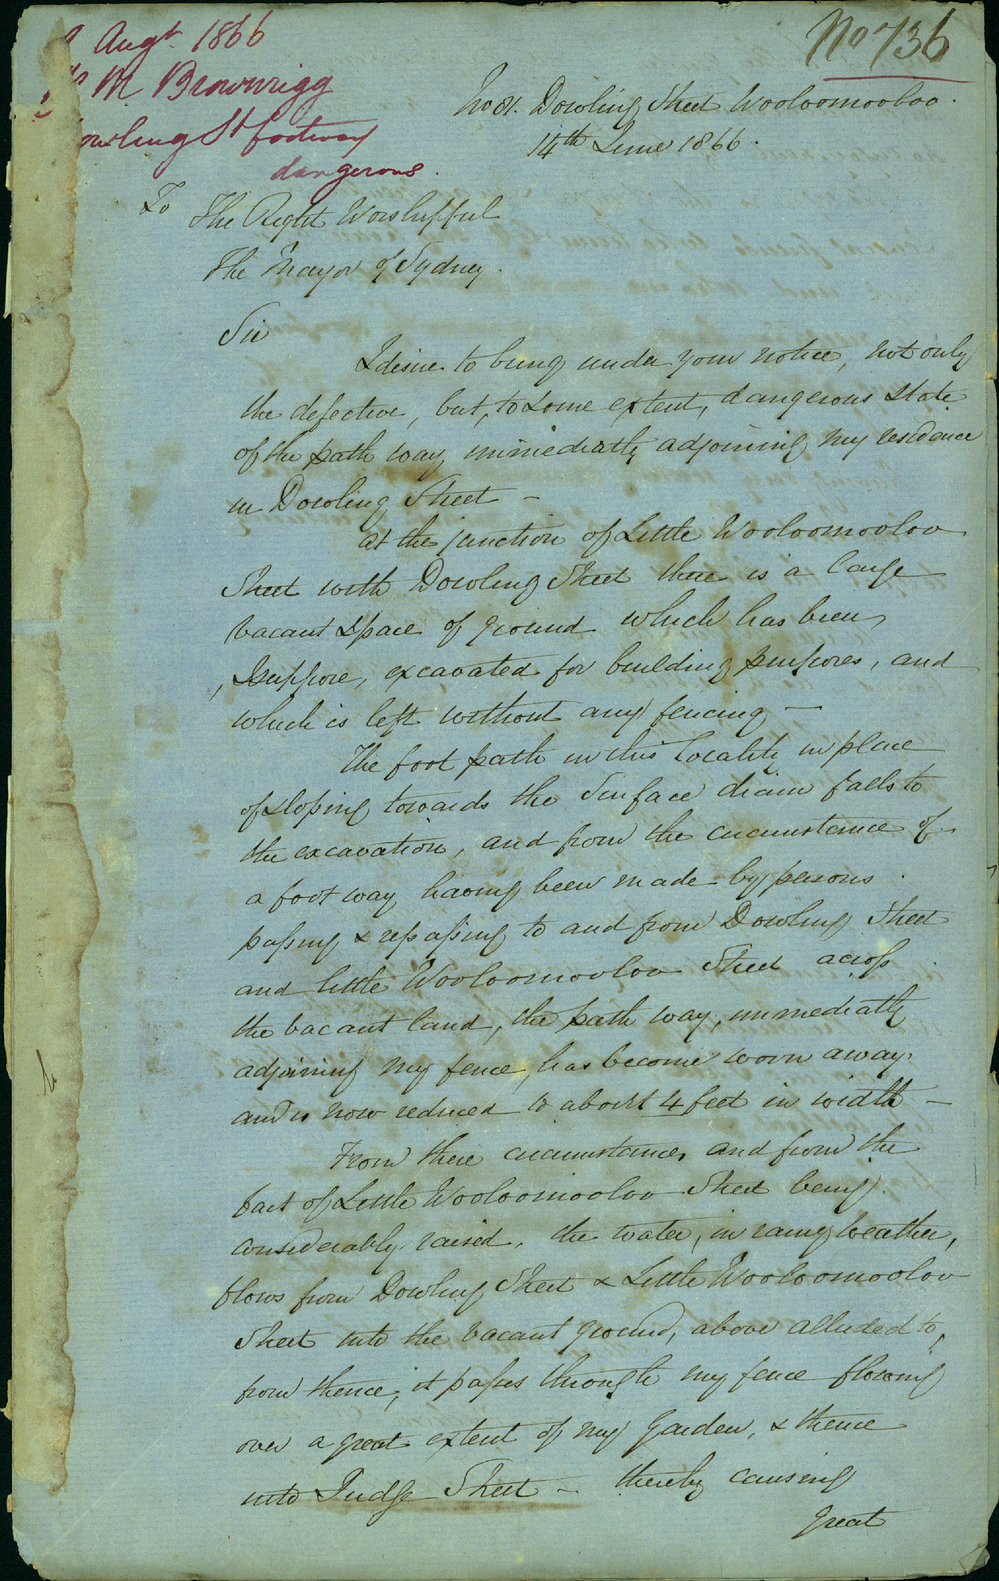 Augt 1866
No 736
M Brownrigg
Dowling St footway
dangerous.
Dowling Street Wooloomooloo.
14th June 1866.
To
The Right Worshipfful
The Mayor of Sydney.
Sir
I desire to bring under your notice, not only
the defective, but, to some extent, dangerous state
of the path way immediatly adjoining my residence
in Dowling Street –
At the junction of Little Wooloomooloo
Street with Dowling Street there is a large
vacant space of ground which has been,
I suppose, excavated for building purposes, and
which is left without any fencing –
The foot path in this locality in place
of sloping towards the surface drain falls to
the excavation, and from the circumstance of
a foot way having been made by persons
passing & repassing to and from Dowling Street
and little Wooloomooloo Street across
the vacant land, the path way, immediatly
adjoining my fence, has become worn away.
and is now reduced to about 4 feet in width –
From these circumstances and from the
fact of Little Wooloomooloo Street being
considerably raised, the water, in rainy weather,
flows from Dowling Street & Little Wooloomooloo
Street into the vacant ground, above alluded to,
from thence, it passes through my fence flowing
over a great extent of my Garden, & thence
into Judge Street – thereby causing
great